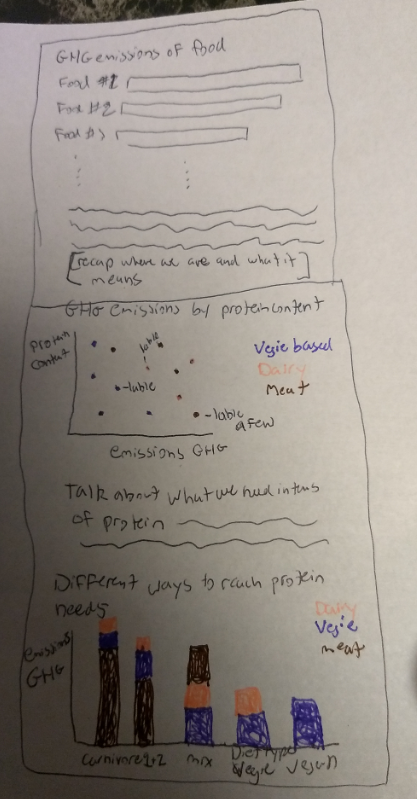 GHG emissions of food
Food #1
Food #2
Food #3
[recap where we are and what it
means]
GHG emissions by protein content
Protein
Content
lable
lable
lable
a few
Vegie based
Dairy
Meat
emissions GHG
Talk about what we need in tems
of protein
Different ways to reach protein
needs
Dairy
Vegie
meat
emissions
GHG
Carnivore 1+2
mix
Diet type
Vegie
Vegan